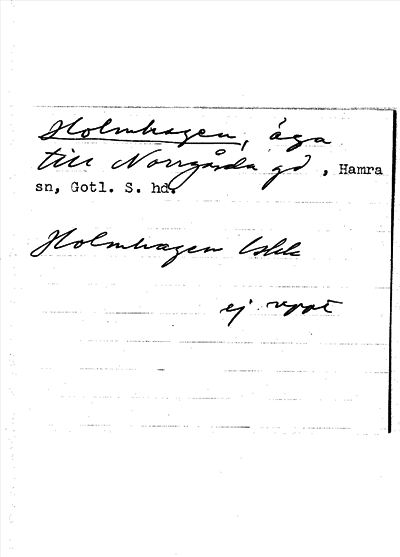 Holmhagen, äga
till Norrgårda gd, Hamra
sn, Gotl. S. hd.
Holmhagen
ej uppt